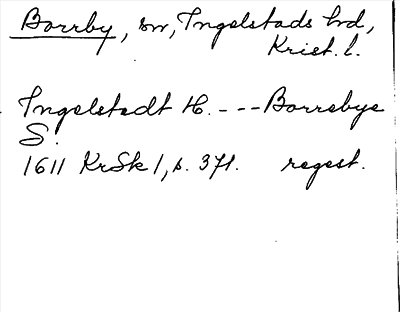 Borrby, sn, Ingelstads hd,
Krist. l.
Ingelstedt H. --- Borrebye
S.
1611 KrSk 1, s. 371. regest.